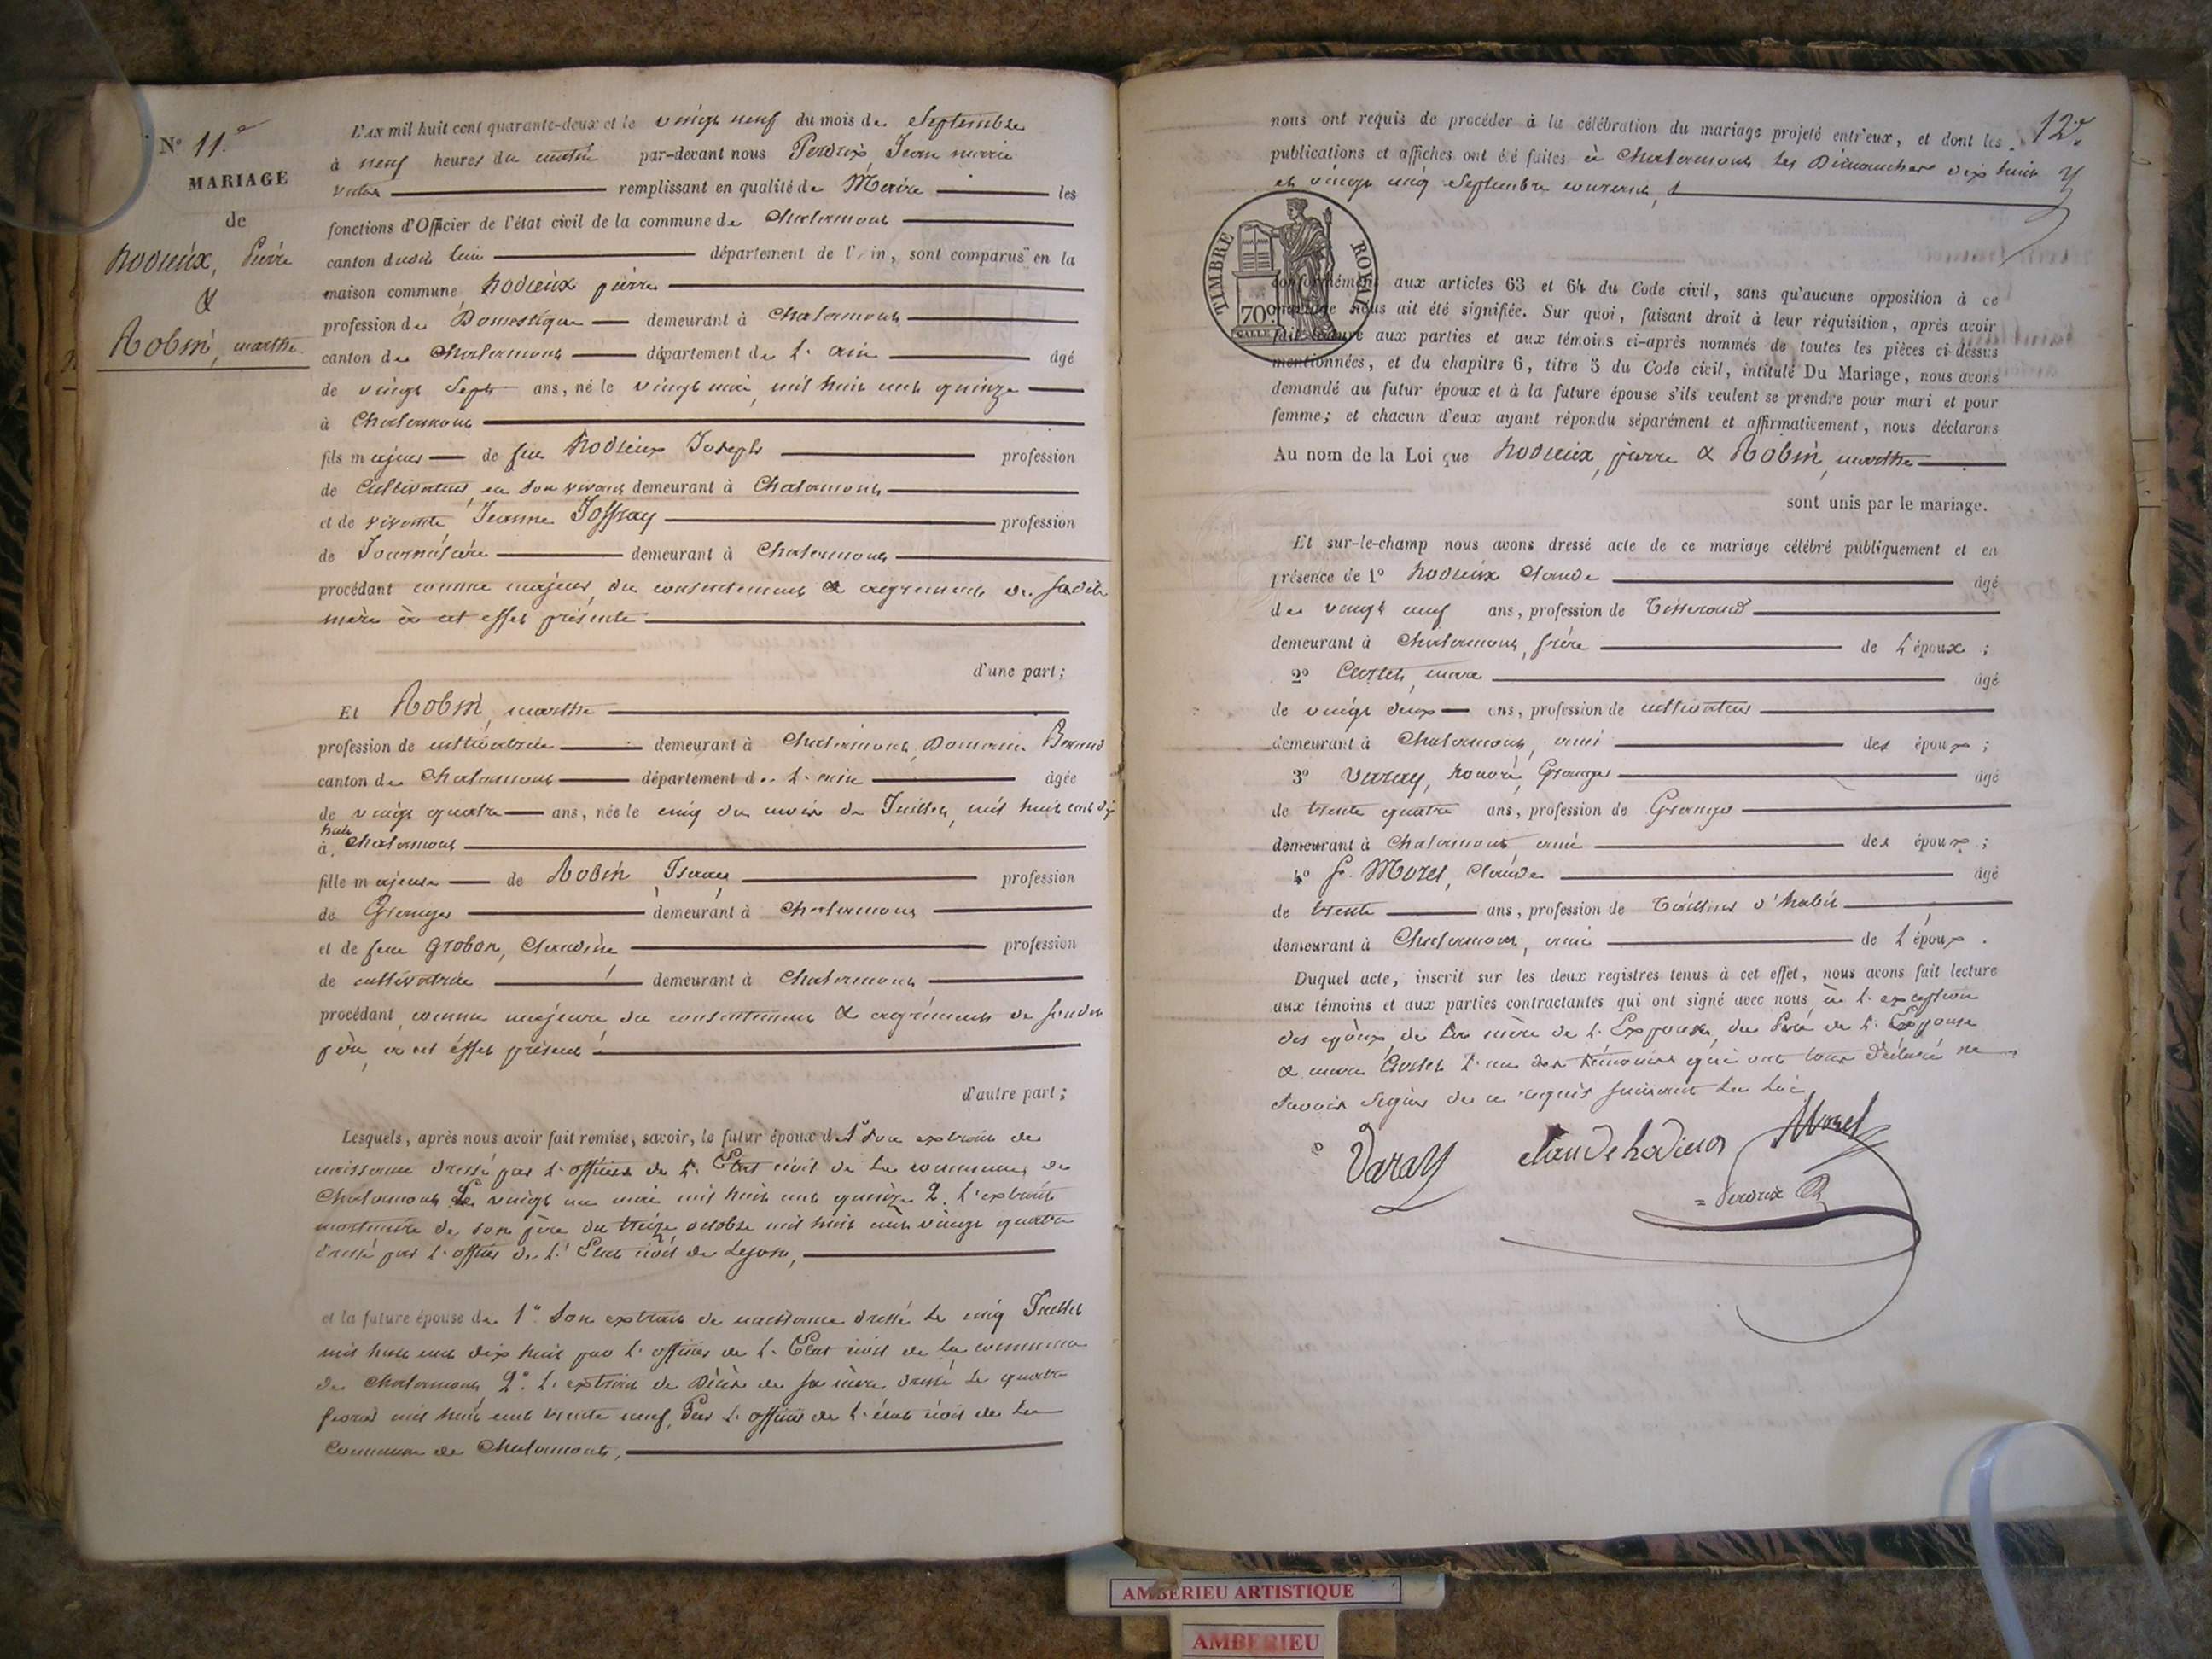 N° 11.e
MARIAGE
de
hodieux, Pierre
&
Robin, marthe
L'AN mil huit cent quarante-deux et le vingt neuf du mois de Septembre
à neuf heures du matin par-devant nous Perdrix, Jean marie
remplissant en qualité de Maire les
fonctions d'Officier de l'état civil de la commune de Chalamont
canton dudit lieu département de l'Ain, sont comparus en la
maison commune hodieux pierre
profession de Domestique demeurant à Chalamont
canton de Chalamont département de l'ain âgé
de vingt Sept ans, né le vingt mai, mil huit cent quinze
à Chalamont
fils majeur de feu hodieux Joseph profession
de Cultivateur, en son vivant demeurant à Chalamont
et de vivante Jeanne Joffray profession
de Journalière demeurant à Chalamont
procédant comme majeur, du consentement & agrément de sadite
mère à cet effet présente
d'une part;
Et Robin, marthe
profession de cultivatrice demeurant à Chalamont, Domaine
canton de Chalamont département de l'ain âgée
de vingt quatre ans, née le cinq du mois de Juillet, mil huit cent dix
huit
à Chalamont
fille majeure de Robin profession
de Granger demeurant à Chalamont
et de feue Grobon, Claudine profession
de cultivatrice demeurant à Chalamont
procédant comme majeure du consentement & agrément de sondit
père, à cet effet présent
d'autre part;
Lesquels, après nous avoir fait remise, savoir, le futur époux de 1° Son extrait de
naissance dressé par l'officier de l'Etat civil de la commune de
Chalamont Le vingt un mai mil huit cent quinze 2. l'extrait
mortuaire de son père du treize octobre mil huit cent vingt quatre
dressé par l'officier de l'Etat civil de Lyon,
et la future épouse de 1° Son extrait de naissance dressé le cinq Juillet
mil huit cent dix huit par l'officier de l'Etat civil de la commune
de Chalamont, 2° l'extrait de Décès de sa mère dressé le quatre
fevrier mil huit cent trente neuf, Par l'officier de l'état civil de la
Commune de Chalamont,
12.e
nous ont requis de procéder à la célébration du mariage projeté entr'eux, et dont les
publications et affiches ont été faites à Chalamont les Dimanches dix huit
et vingt cinq Septembre courant,
TIMBRE ROYAL
70c
conformément aux articles 63 et 64 du Code civil, sans qu'aucune opposition à ce
mariage nous ait été signifiée. Sur quoi, faisant droit à leur réquisition, après avoir
fait lecture aux parties et aux témoins ci-après nommés de toutes les pièces ci-dessus
mentionnées, et du chapitre 6, titre 5 du Code civil, intitulé Du Mariage, nous avons
demandé au futur époux et à la future épouse s'ils veulent se prendre pour mari et pour
femme; et chacun d'eux ayant répondu séparément et affirmativement, nous déclarons
Au nom de la Loi que hodieux, pierre & Robin, marthe
sont unis par le mariage.
Et sur-le-champ nous avons dressé acte de ce mariage célébré publiquement et en
présence de 1° hodieux Claude âgé
de vingt neuf ans, profession de Tisserand
demeurant à Chalamont, frère de l'époux ;
2° âgé
de vingt deux ans, profession de cultivateur
demeurant à Chalamont, ami des époux ;
3° Varay, honoré, Granger âgé
de trente quatre ans, profession de Granger
demeurant à Chalamont ami des époux ;
4° Morel, Claude âgé
de trente ans, profession de Tailleur d'habits
demeurant à Chalamont, ami de l'époux .
Duquel acte, inscrit sur les deux registres tenus à cet effet, nous avons fait lecture
aux témoins et aux parties contractantes qui ont signé avec nous, à l'exception
des époux, de la mère de l'Epouse, du Père de l'Epouse
& l'un des témoins qui ont tous déclaré ne
Savoir Signer de ce requis suivant la Loi
Varay
claude hodieux
Morel
Perdrix
AMBERIEU ARTISTIQUE
AMBERIEU